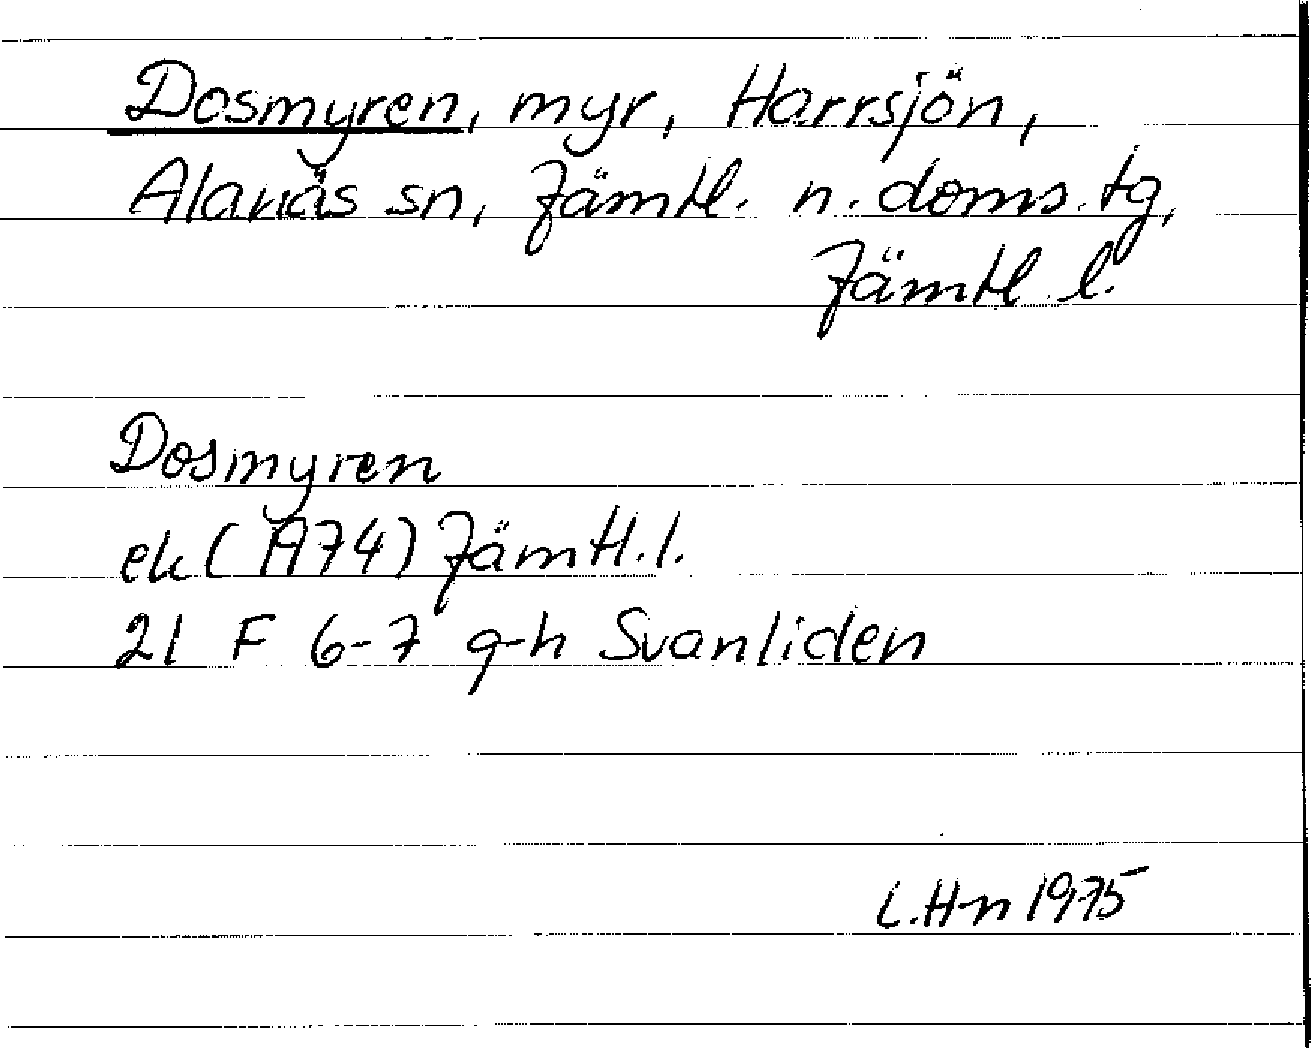 Dosmyren, myr, Harrsjön,
Alanäs sn, Jämtl. n. doms. tg,
Jämtl. l.
Dosmyren
ek (A74) Jämtl. l.
21 F 6-7 g-h Svanliden
L.Hn 1975